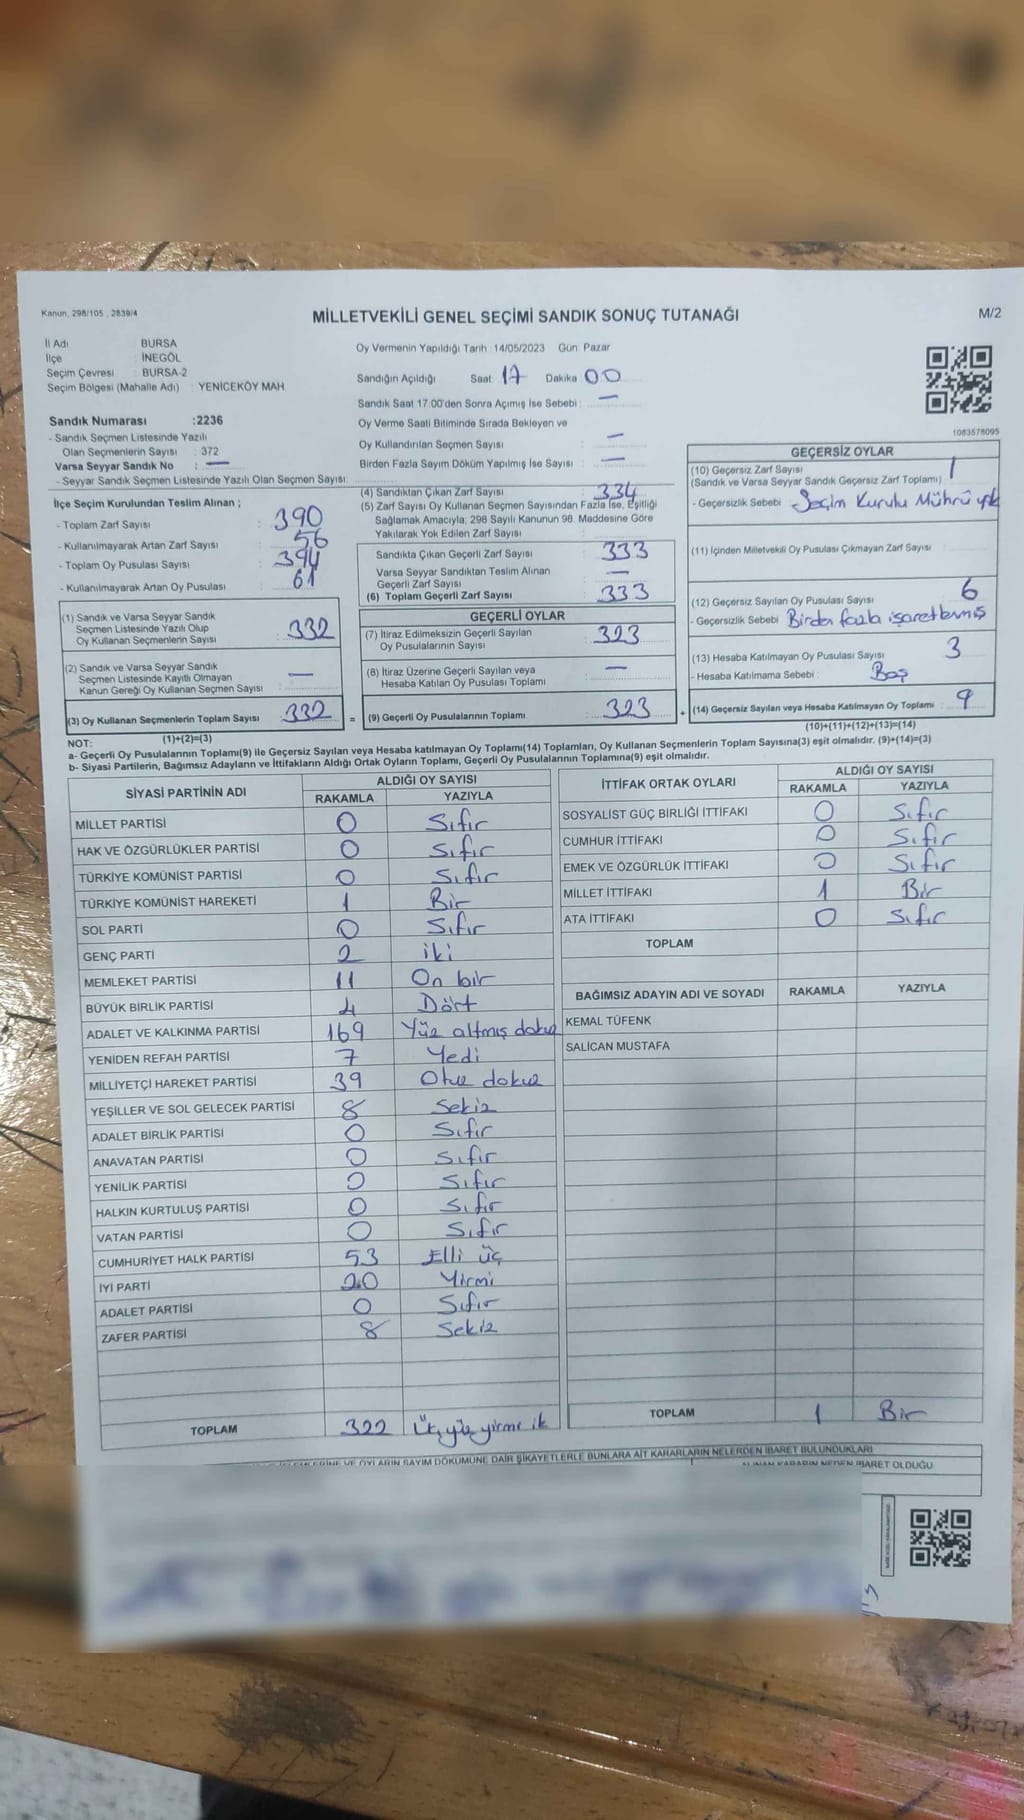 Kanun, 298/105 , 2839/4
MİLLETVEKİLİ GENEL SEÇİMİ SANDIK SONUÇ TUTANAĞI
M/2
İl Adı BURSA
İlçe İNEGÖL
Seçim Çevresi BURSA-2
Seçim Bölgesi (Mahalle Adı) : YENİCEKÖY MAH
Oy Vermenin Yapıldığı Tarih :14/05/2023 Gün: Pazar
Sandığın Açıldığı Saat: 17 Dakika 00
Sandık Saat 17:00'den Sonra Açımış İse Sebebi : —
Oy Verme Saati Bitiminde Sırada Bekleyen ve
Oy Kullandırılan Seçmen Sayısı : —
Birden Fazla Sayım Döküm Yapılmış İse Sayısı : —
1083578095
Sandık Numarası :2236
- Sandık Seçmen Listesinde Yazılı
Olan Seçmenlerin Sayısı : 372
Varsa Seyyar Sandık No : —
- Seyyar Sandık Seçmen Listesinde Yazılı Olan Seçmen Sayısı:
İlçe Seçim Kurulundan Teslim Alınan ;
- Toplam Zarf Sayısı : 390
- Kullanılmayarak Artan Zarf Sayısı : 56
- Toplam Oy Pusulası Sayısı : 394
- Kullanılmayarak Artan Oy Pusulası : 61
(1) Sandık ve Varsa Seyyar Sandık
Seçmen Listesinde Yazılı Olup
Oy Kullanan Seçmenlerin Sayısı : 332
(2) Sandık ve Varsa Seyyar Sandık
Seçmen Listesinde Kayıtlı Olmayan
Kanun Gereği Oy Kullanan Seçmen Sayısı : —
(3) Oy Kullanan Seçmenlerin Toplam Sayısı : 332
(1)+(2)=(3)
(4) Sandıktan Çıkan Zarf Sayısı : 334
(5) Zarf Sayısı Oy Kullanan Seçmen Sayısından Fazla İse, Eşitliği
Sağlamak Amacıyla, 298 Sayılı Kanunun 98. Maddesine Göre
Yakılarak Yok Edilen Zarf Sayısı :
Sandıkta Çıkan Geçerli Zarf Sayısı : 333
Varsa Seyyar Sandıktan Teslim Alınan
Geçerli Zarf Sayısı : —
(6) Toplam Geçerli Zarf Sayısı : 333
GEÇERLİ OYLAR
(7) İtiraz Edilmeksizin Geçerli Sayılan
Oy Pusulalarının Sayısı : 323
(8) İtiraz Üzerine Geçerli Sayılan veya
Hesaba Katılan Oy Pusulası Toplamı : —
= (9) Geçerli Oy Pusulalarının Toplamı : 323
GEÇERSİZ OYLAR
(10) Geçersiz Zarf Sayısı : 1
(Sandık ve Varsa Seyyar Sandık Geçersiz Zarf Toplamı)
- Geçersizlik Sebebi : Seçim Kurulu Mührü yok
(11) İçinden Milletvekili Oy Pusulası Çıkmayan Zarf Sayısı :
(12) Geçersiz Sayılan Oy Pusulası Sayısı : 6
- Geçersizlik Sebebi : Birden fazla işaretlenmiş
(13) Hesaba Katılmayan Oy Pusulası Sayısı : 3
- Hesaba Katılmama Sebebi : Boş
+ (14) Geçersiz Sayılan veya Hesaba Katılmayan Oy Toplamı : 9
(10)+(11)+(12)+(13)=(14)
NOT:
a- Geçerli Oy Pusulalarının Toplamı(9) ile Geçersiz Sayılan veya Hesaba katılmayan Oy Toplamı(14) Toplamları, Oy Kullanan Seçmenlerin Toplam Sayısına(3) eşit olmalıdır. (9)+(14)=(3)
b- Siyasi Partilerin, Bağımsız Adayların ve İttifakların Aldığı Ortak Oyların Toplamı, Geçerli Oy Pusulalarının Toplamına(9) eşit olmalıdır.
SİYASİ PARTİNİN ADI ALDIĞI OY SAYISI
RAKAMLA YAZIYLA
MİLLET PARTİSİ 0 Sıfır
HAK VE ÖZGÜRLÜKLER PARTİSİ 0 Sıfır
TÜRKİYE KOMÜNİST PARTİSİ 0 Sıfır
TÜRKİYE KOMÜNİST HAREKETİ 1 Bir
SOL PARTİ 0 Sıfır
GENÇ PARTİ 2 iki
MEMLEKET PARTİSİ 11 On bir
BÜYÜK BİRLİK PARTİSİ 4 Dört
ADALET VE KALKINMA PARTİSİ 169 Yüz altmış dokuz
YENİDEN REFAH PARTİSİ 7 Yedi
MİLLİYETÇİ HAREKET PARTİSİ 39 Otuz dokuz
YEŞİLLER VE SOL GELECEK PARTİSİ 8 Sekiz
ADALET BİRLİK PARTİSİ 0 Sıfır
ANAVATAN PARTİSİ 0 Sıfır
YENİLİK PARTİSİ 0 Sıfır
HALKIN KURTULUŞ PARTİSİ 0 Sıfır
VATAN PARTİSİ 0 Sıfır
CUMHURİYET HALK PARTİSİ 53 Elli üç
İYİ PARTİ 20 Yirmi
ADALET PARTİSİ 0 Sıfır
ZAFER PARTİSİ 8 Sekiz
TOPLAM 322 Üç yüz yirmi ik
İTTİFAK ORTAK OYLARI ALDIĞI OY SAYISI
RAKAMLA YAZIYLA
SOSYALİST GÜÇ BİRLİĞİ İTTİFAKI 0 Sıfır
CUMHUR İTTİFAKI 0 Sıfır
EMEK VE ÖZGÜRLÜK İTTİFAKI 0 Sıfır
MİLLET İTTİFAKI 1 Bir
ATA İTTİFAKI 0 Sıfır
TOPLAM
BAĞIMSIZ ADAYIN ADI VE SOYADI RAKAMLA YAZIYLA
KEMAL TÜFENK
SALİCAN MUSTAFA
TOPLAM 1 Bir
VE OYLARIN SAYIM DÖKÜMÜNE DAİR ŞİKAYETLERLE BUNLARA AİT KARARLARIN NELERDEN İBARET BULUNDUKLARI
ALINAN KARARIN NEDEN İBARET OLDUĞU